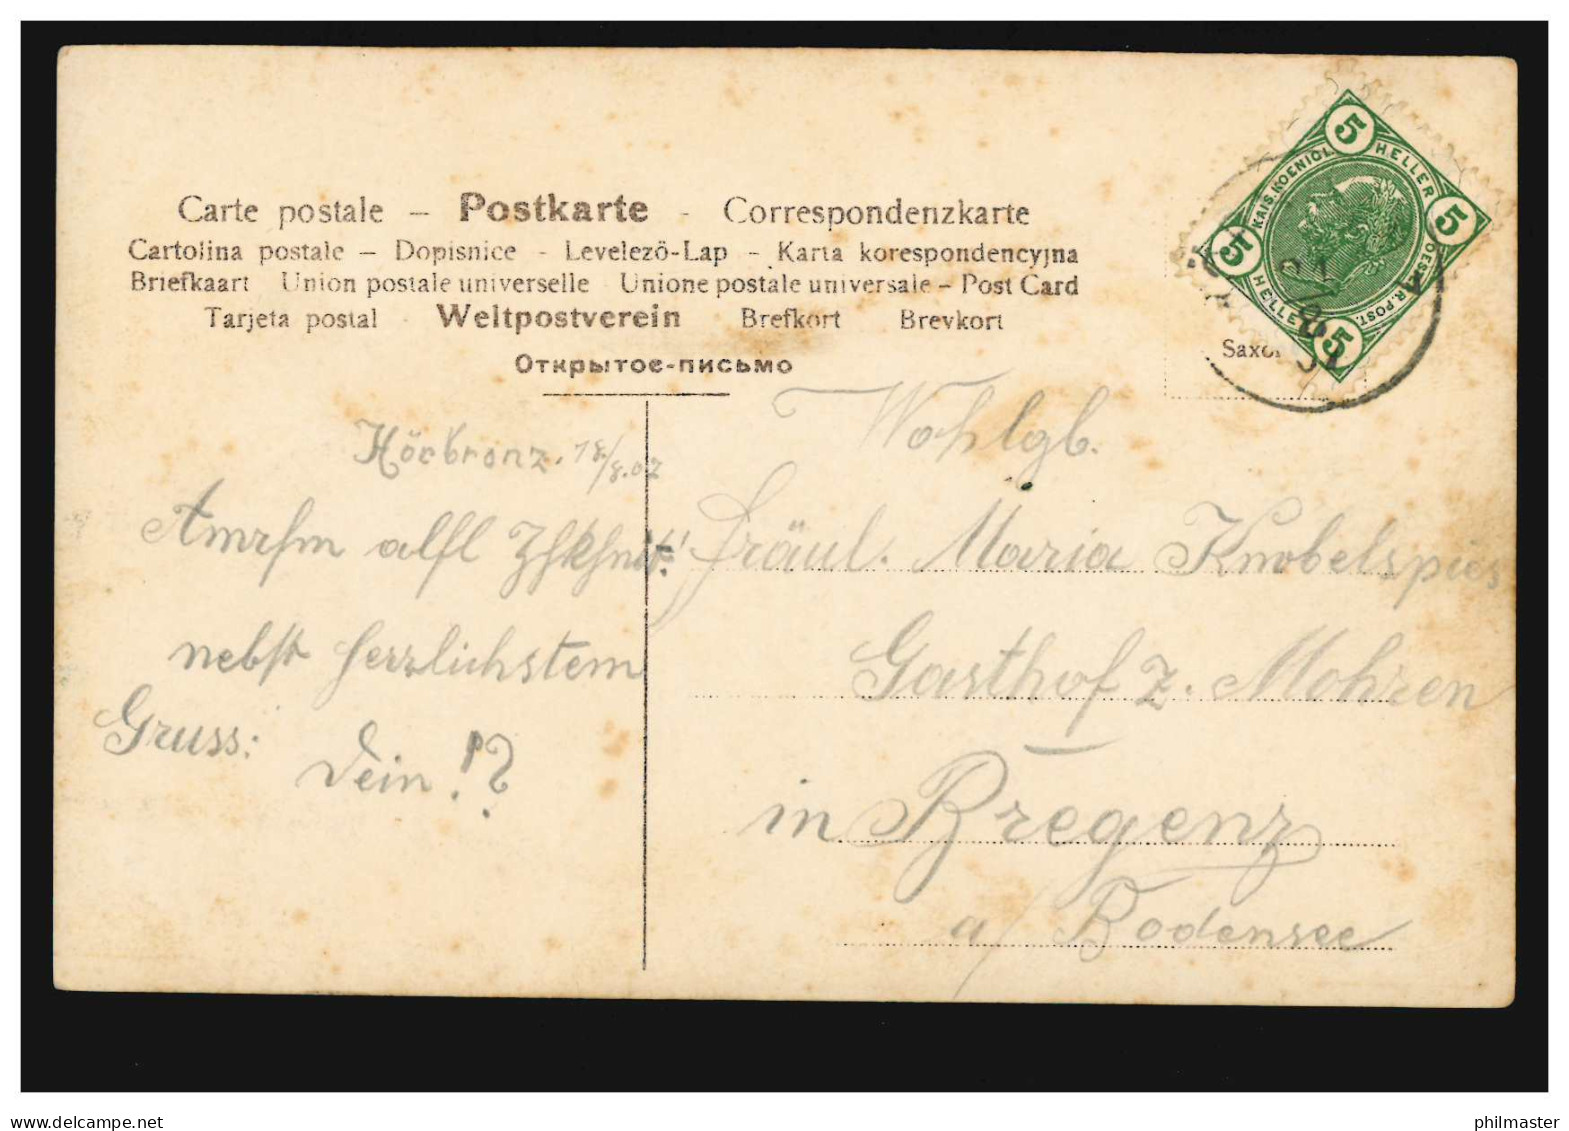 Carte postale – Postkarte - Correspondenzkarte
Cartolina postale – Dopisnice - Levelező-Lap - Karta korespondencyjna
Briefkaart Union postale universelle Unione postale universale – Post Card
Tarjeta postal Weltpostverein Brefkort Brevkort
Открытое-письмо
5 HELLER 5
KAIS. KOENIGL. OESTERR. POST.
5 HELLER 5
21
8
07
Saxo
Hörbranz. 18./8.07
nebst herzlichstem
Gruss:
Dein!?
Wohlgb.
Fräul. Maria Knobelspies
Gasthof z. Mohren
in Bregenz
a/ Bodensee
www.delcampe.net
philmaster